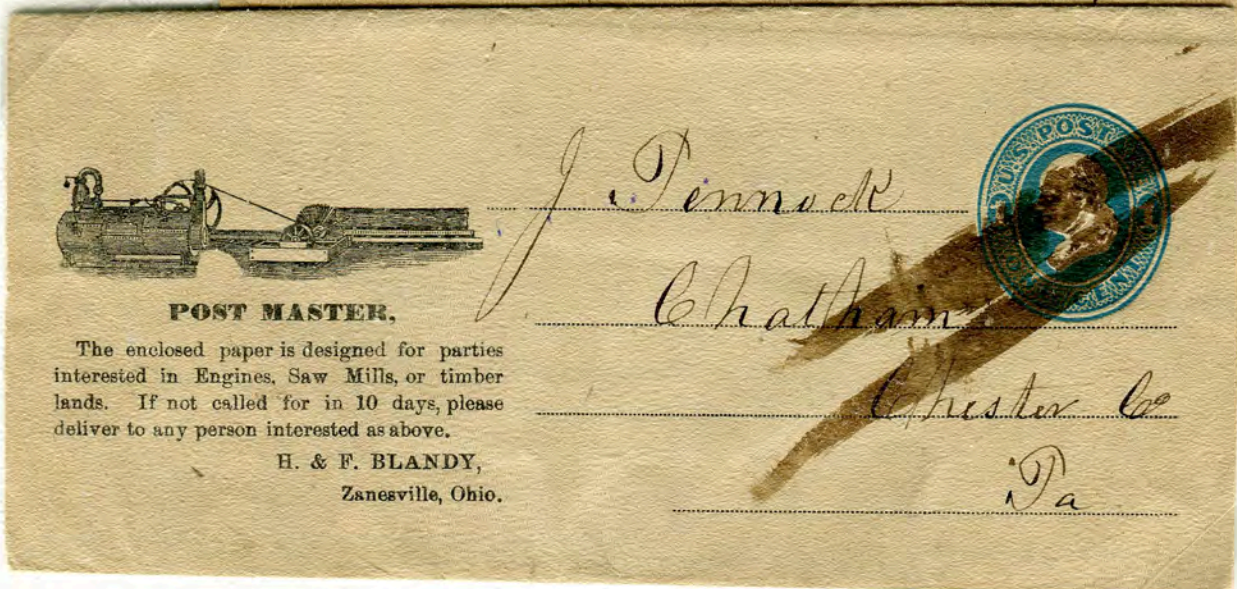 POST MASTER,
The enclosed paper is designed for parties
interested in Engines, Saw Mills, or timber
lands. If not called for in 10 days, please
deliver to any person interested as above.
H. & F. BLANDY,
Zanesville, Ohio.
J Pennock
Chatham
Chester Co
Pa
U.S. POST
CENT